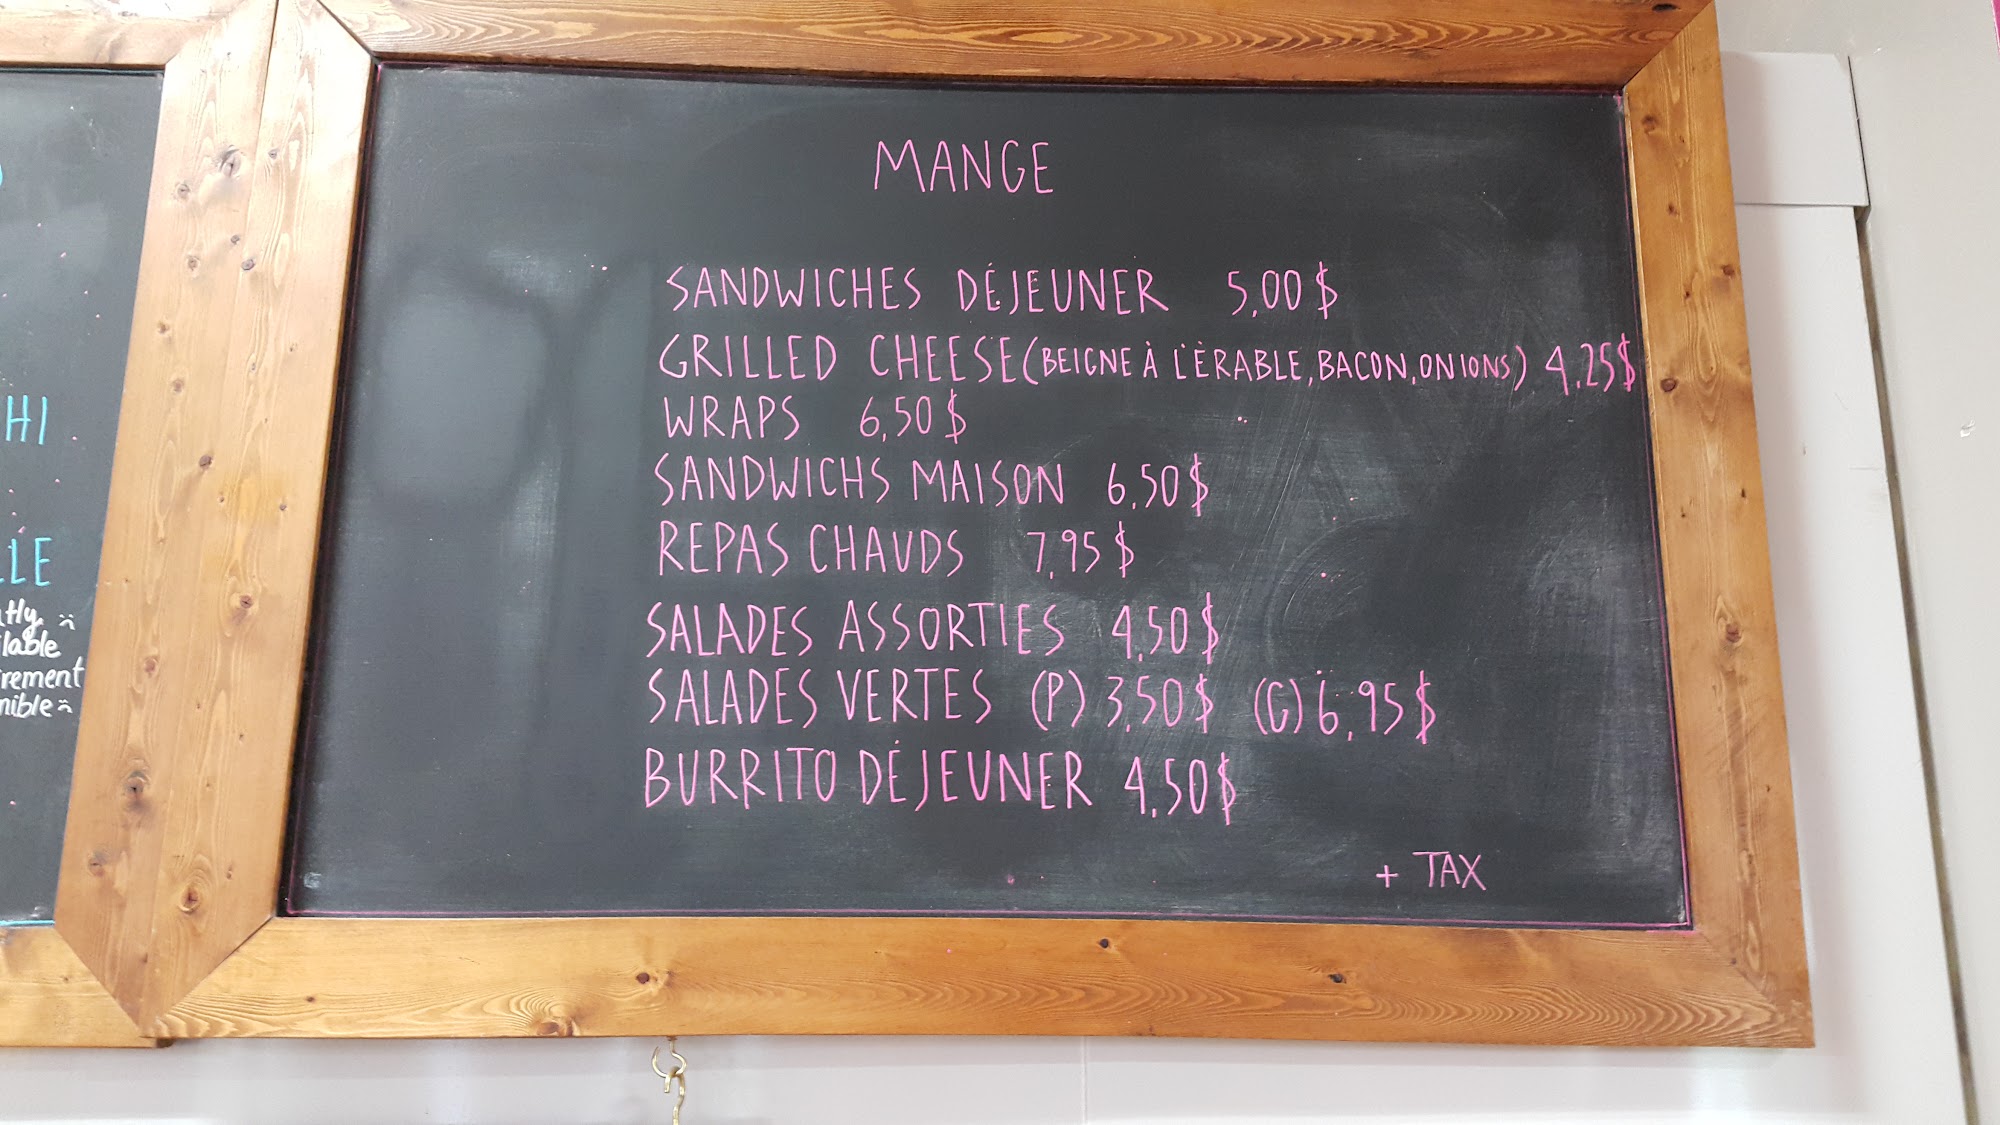 HI
LLE
ilable
MANGE
SANDWICHES DÉJEUNER 5,00$
GRILLED CHEESE (BEIGNE À L'ÈRABLE, BACON, ONIONS) 4,25$
WRAPS 6,50$
SANDWICHS MAISON 6,50$
REPAS CHAUDS 7,95$
SALADES ASSORTIES 4,50$
SALADES VERTES (P) 3,50$ (G) 6,95$
BURRITO DÉJEUNER 4,50$
+ TAX